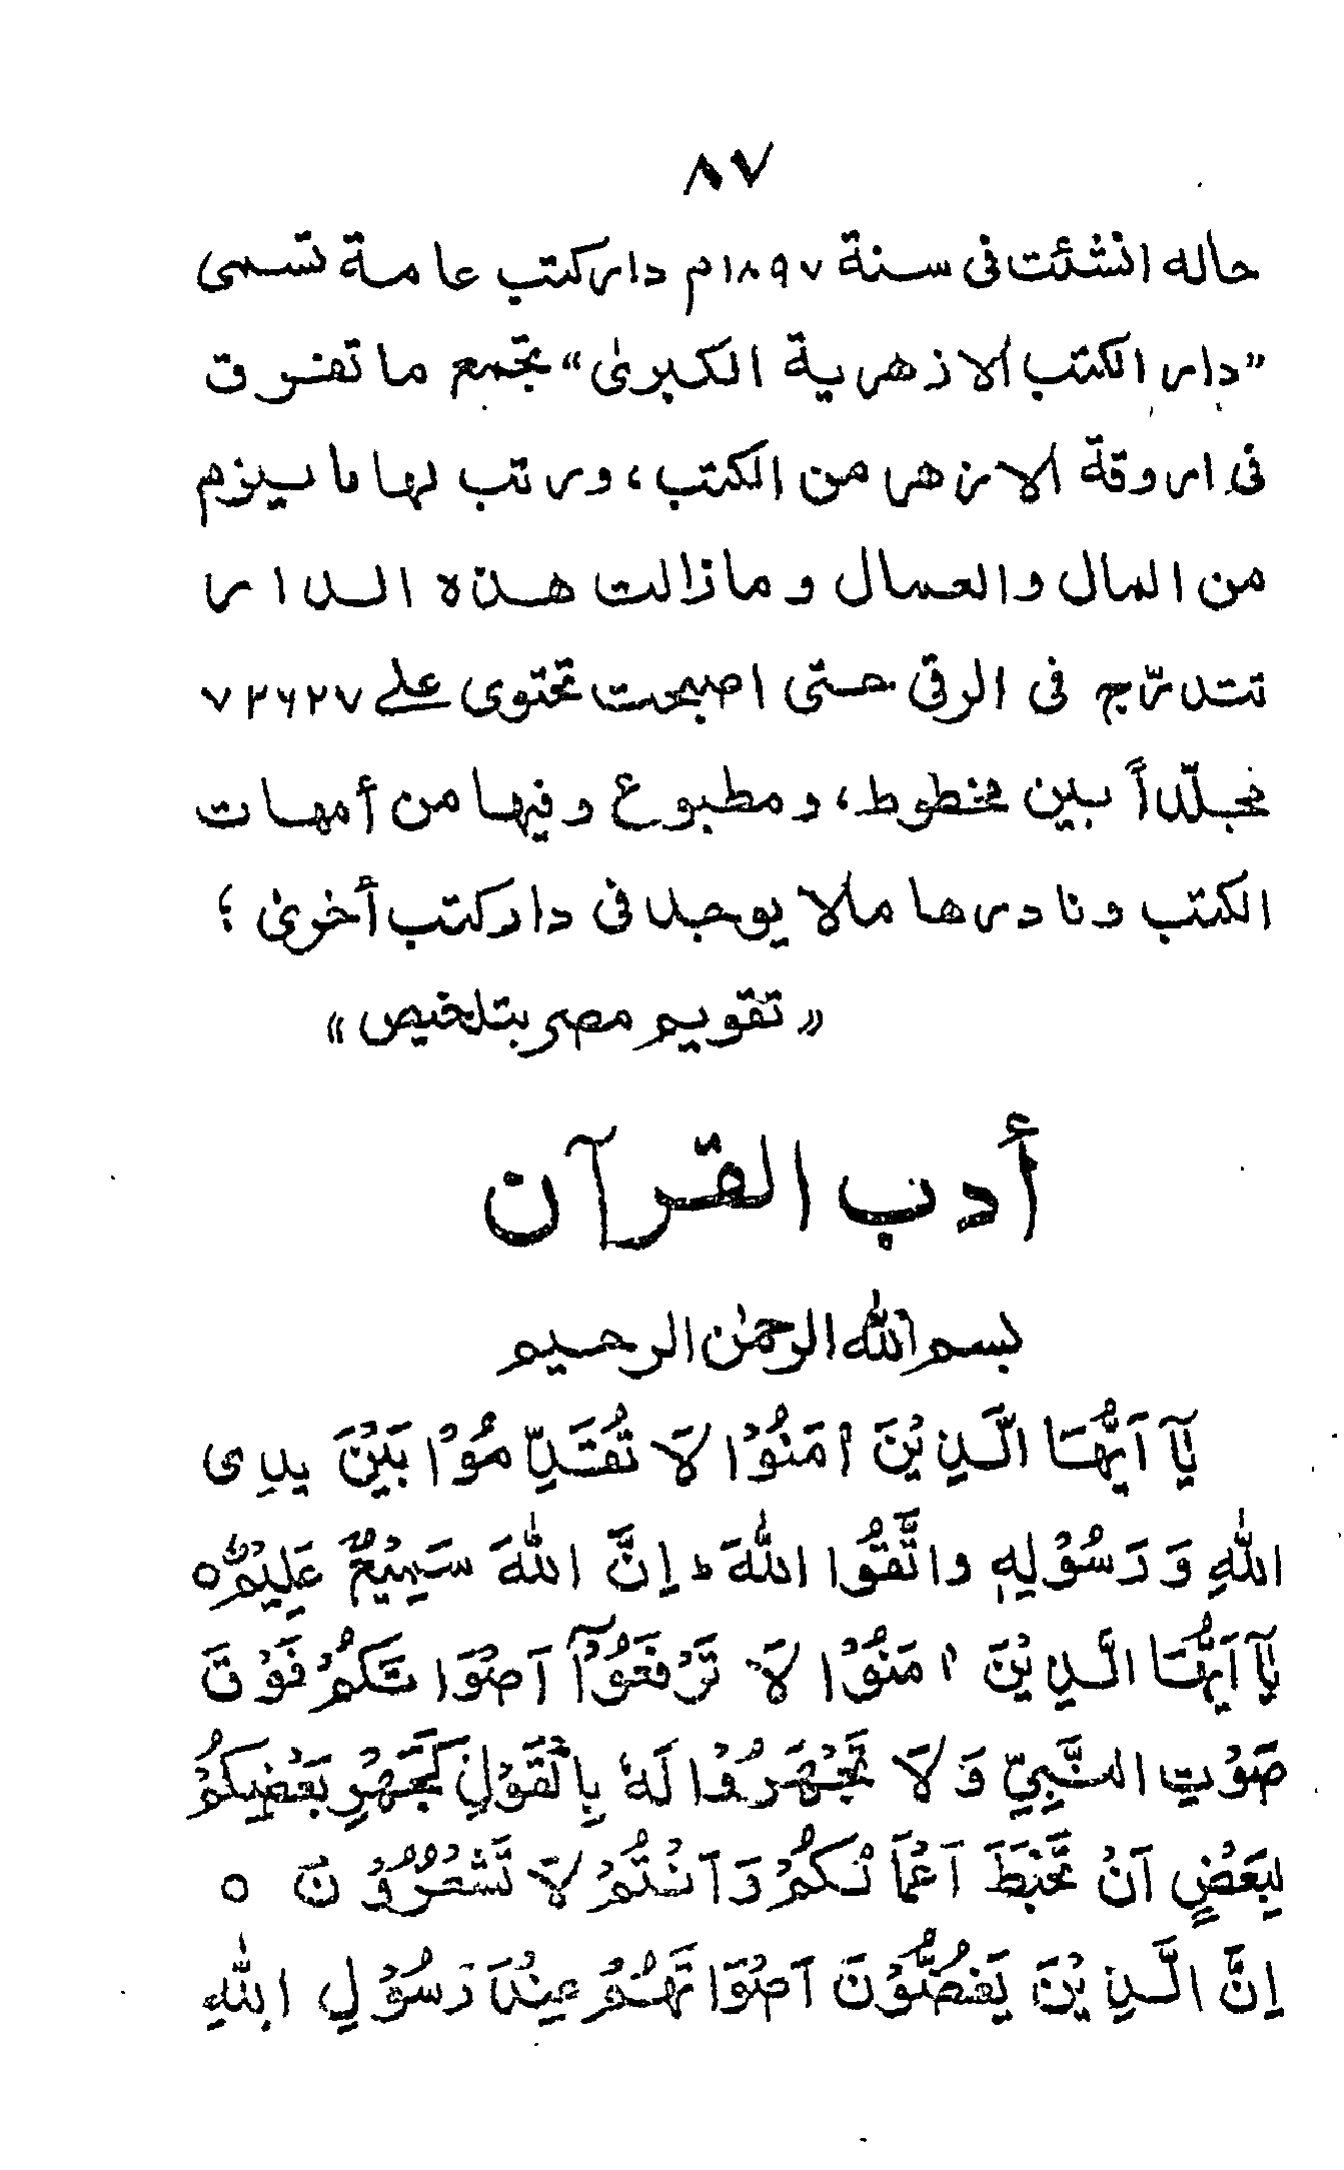 ٨٧
حاله انشئت فى سنة ١٨٩٧م دار كتب عامة تسمى
"دار الكتب الازهرية الكبرىٰ" تجمع ما تفرق
فى اروقة الازهر من الكتب، ورتب لها ما يلزم
من المال والعمال وما زالت هذه الدار
تتدرّج فى الرقى حتى اصبحت تحتوى علے ٧٣٦٢٧
مجلّداً بين مخطوط، ومطبوع وفيها من أمهات
الكتب ونادرها مالا يوجد فى دار كتب أخرىٰ ؛
«تقويم مصر بتلخيص»
أدب القرآن
بسم الله الرحمٰن الرحيم
يَآ اَيُّهَا الَّذِيْنَ اٰمَنُوْا لَا تُقَدِّمُوْا بَيْنَ يدِى
اللهِ وَرَسُوْلِهٖ واتَّقُوا اللهَ ط اِنَّ اللهَ سَمِيْعٌ عَلِيْمٌ ه
يَآ اَيُّهَا الَّذِيْنَ اٰمَنُوْا لَا تَرْفَعُوْآ اَصْوَاتَكُمْ فَوْقَ
صَوْتِ النَّبِيِّ وَلَا تَجْهَرُوْا لَهٗ بِالْقَوْلِ كَجَهْرِ بَعْضِكُمْ
لِبَعْضٍ اَنْ تَحْبَطَ اَعْمَالُكُمْ وَاَنْتُمْ لَا تَشْعُرُوْنَ ه
اِنَّ الَّذِيْنَ يَغُضُّوْنَ اَصْوَاتَهُمْ عِنْدَ رَسُوْلِ اللهِ